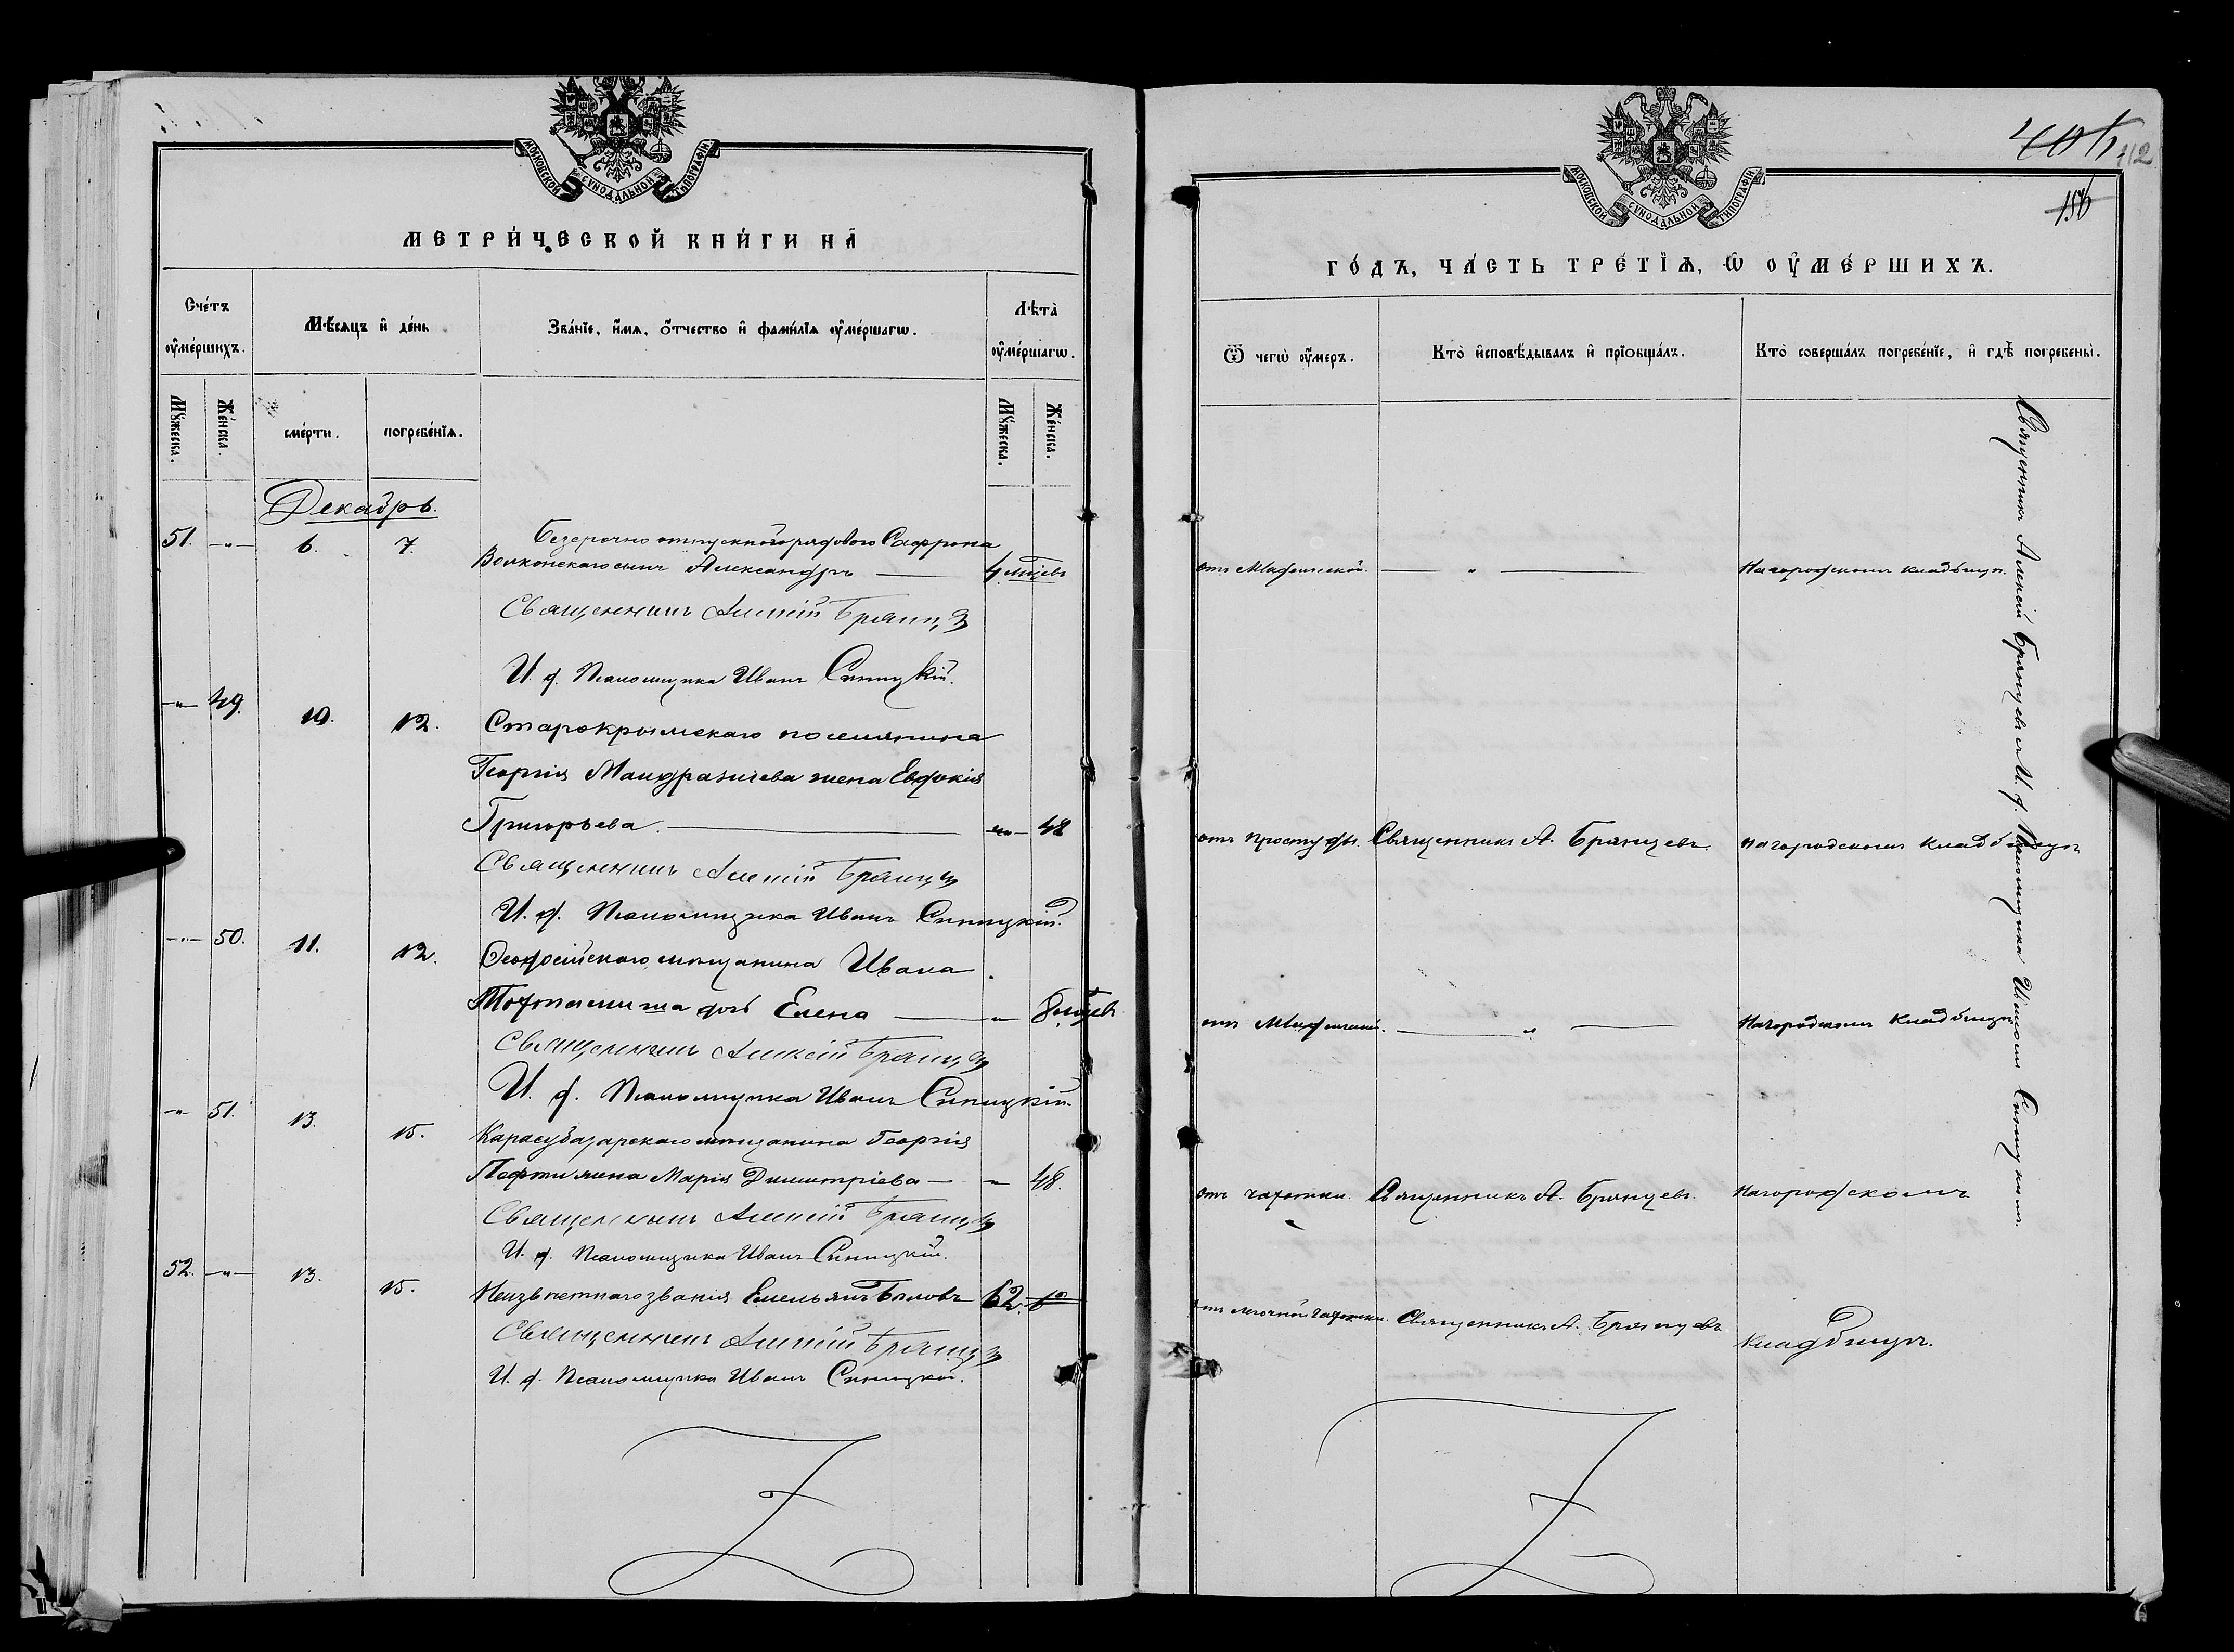 МОСКОВСКОЙ СѴНОДАЛЬНОЙ ТИПОГРАФІИ
МЕТРИ́ЧЕСКОЙ КНИ́ГИ НА̀
Сче́тъ оу҆ме́ршихъ.
Мѣ́сяцъ и҆ де́нь
Зва́нїе, и҆́мѧ, ѻ҆́тчество и҆ фами́лїѧ оу҆ме́ршагѡ.
Лѣта̀ оу҆ме́ршагѡ.
Мꙋ́жеска.
Же́нска.
сме́рти.
погребе́нїѧ.
Мꙋ́жеска.
Же́нска.
Декабрь.
51. —„— 6. 7. Безсрочно отпускного рядового Сафрона
Волконскаго сынъ Александръ — 4 мѣсяцевъ
Священникъ Алексій Брянцевъ
И. д. Псаломщика Иванъ Синицкій.
—„— 49. 10. 12. Старокрымскаго поселянина
Георгія Мандражіева жена Евдокія
Григорьева. — „ — 48
Священникъ Алексій Брянцевъ
И. д. Псаломщика Иванъ Синицкій.
—„— 50. 11. 12. Ѳеодосійскаго мѣщанина Ивана
дочь Елена — „ 8 мѣсяцевъ
Священникъ Алексій Брянцевъ
И. д. Псаломщика Иванъ Синицкій.
—„— 51. 13. 15. Карасубазарскаго мѣщанина Георгія
жена Марія Димитріева — „ 48.
Священникъ Алексій Брянцевъ
И. д. Псаломщика Иванъ Синицкій.
52. —„— 13. 15. Неизвѣстнаго званія Емельянъ Бѣловъ 62.
Священникъ Алексій Брянцевъ
И. д. Псаломщика Иванъ Синицкій.
МОСКОВСКОЙ СѴНОДАЛЬНОЙ ТИПОГРАФІИ
412
156
ГО́ДЪ, ЧА́СТЬ ТРЕ́ТЇѦ, Ѡ҆ ОУ҆МЕ́РШИХЪ.
Ѿ чегѡ̀ оу҆́меръ.
Кто̀ и҆сповѣ́дывалъ и҆ прїѡбща́лъ.
Кто̀ соверша́лъ погребе́нїе, и҆ гдѣ̀ погребены̀.
отъ Младенческой. — „ — На городскомъ кладбищѣ.
отъ простуды. Священникъ А. Брянцевъ. на городскомъ кладбищѣ
отъ Младенческой. — „ — На городскомъ кладбищѣ
отъ чахотки. Священникъ А. Брянцевъ. На городскомъ
отъ легочной чахотки. Священникъ А. Брянцевъ кладбищѣ.
Священникъ Алексій Брянцевъ съ И. д. Псаломщика Иваномъ Синицкимъ.